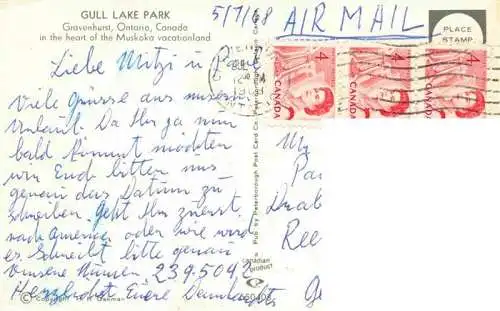 GULL LAKE PARK
Gravenhurst, Ontario, Canada
in the heart of the Muskoka vacationland
5/7/68 AIR MAIL
PLACE
STAMP
4 CANADA
4 CANADA
4 CANADA
Liebe Mitzi u
Viele Grüsse aus unserem
Urlaub. Da Ihr ja nun
bald kommt möchten
wir Euch bitten uns
genau das Datum zu
schreiben. Geht Ihr zuerst
nach Amerika oder wie wird
es. Schreibt bitte genau
Unsere Nummer 239-5042
Herzlichst Euere
Pub. by Peterborough Post Card Co.
canadian
product
© Copyright